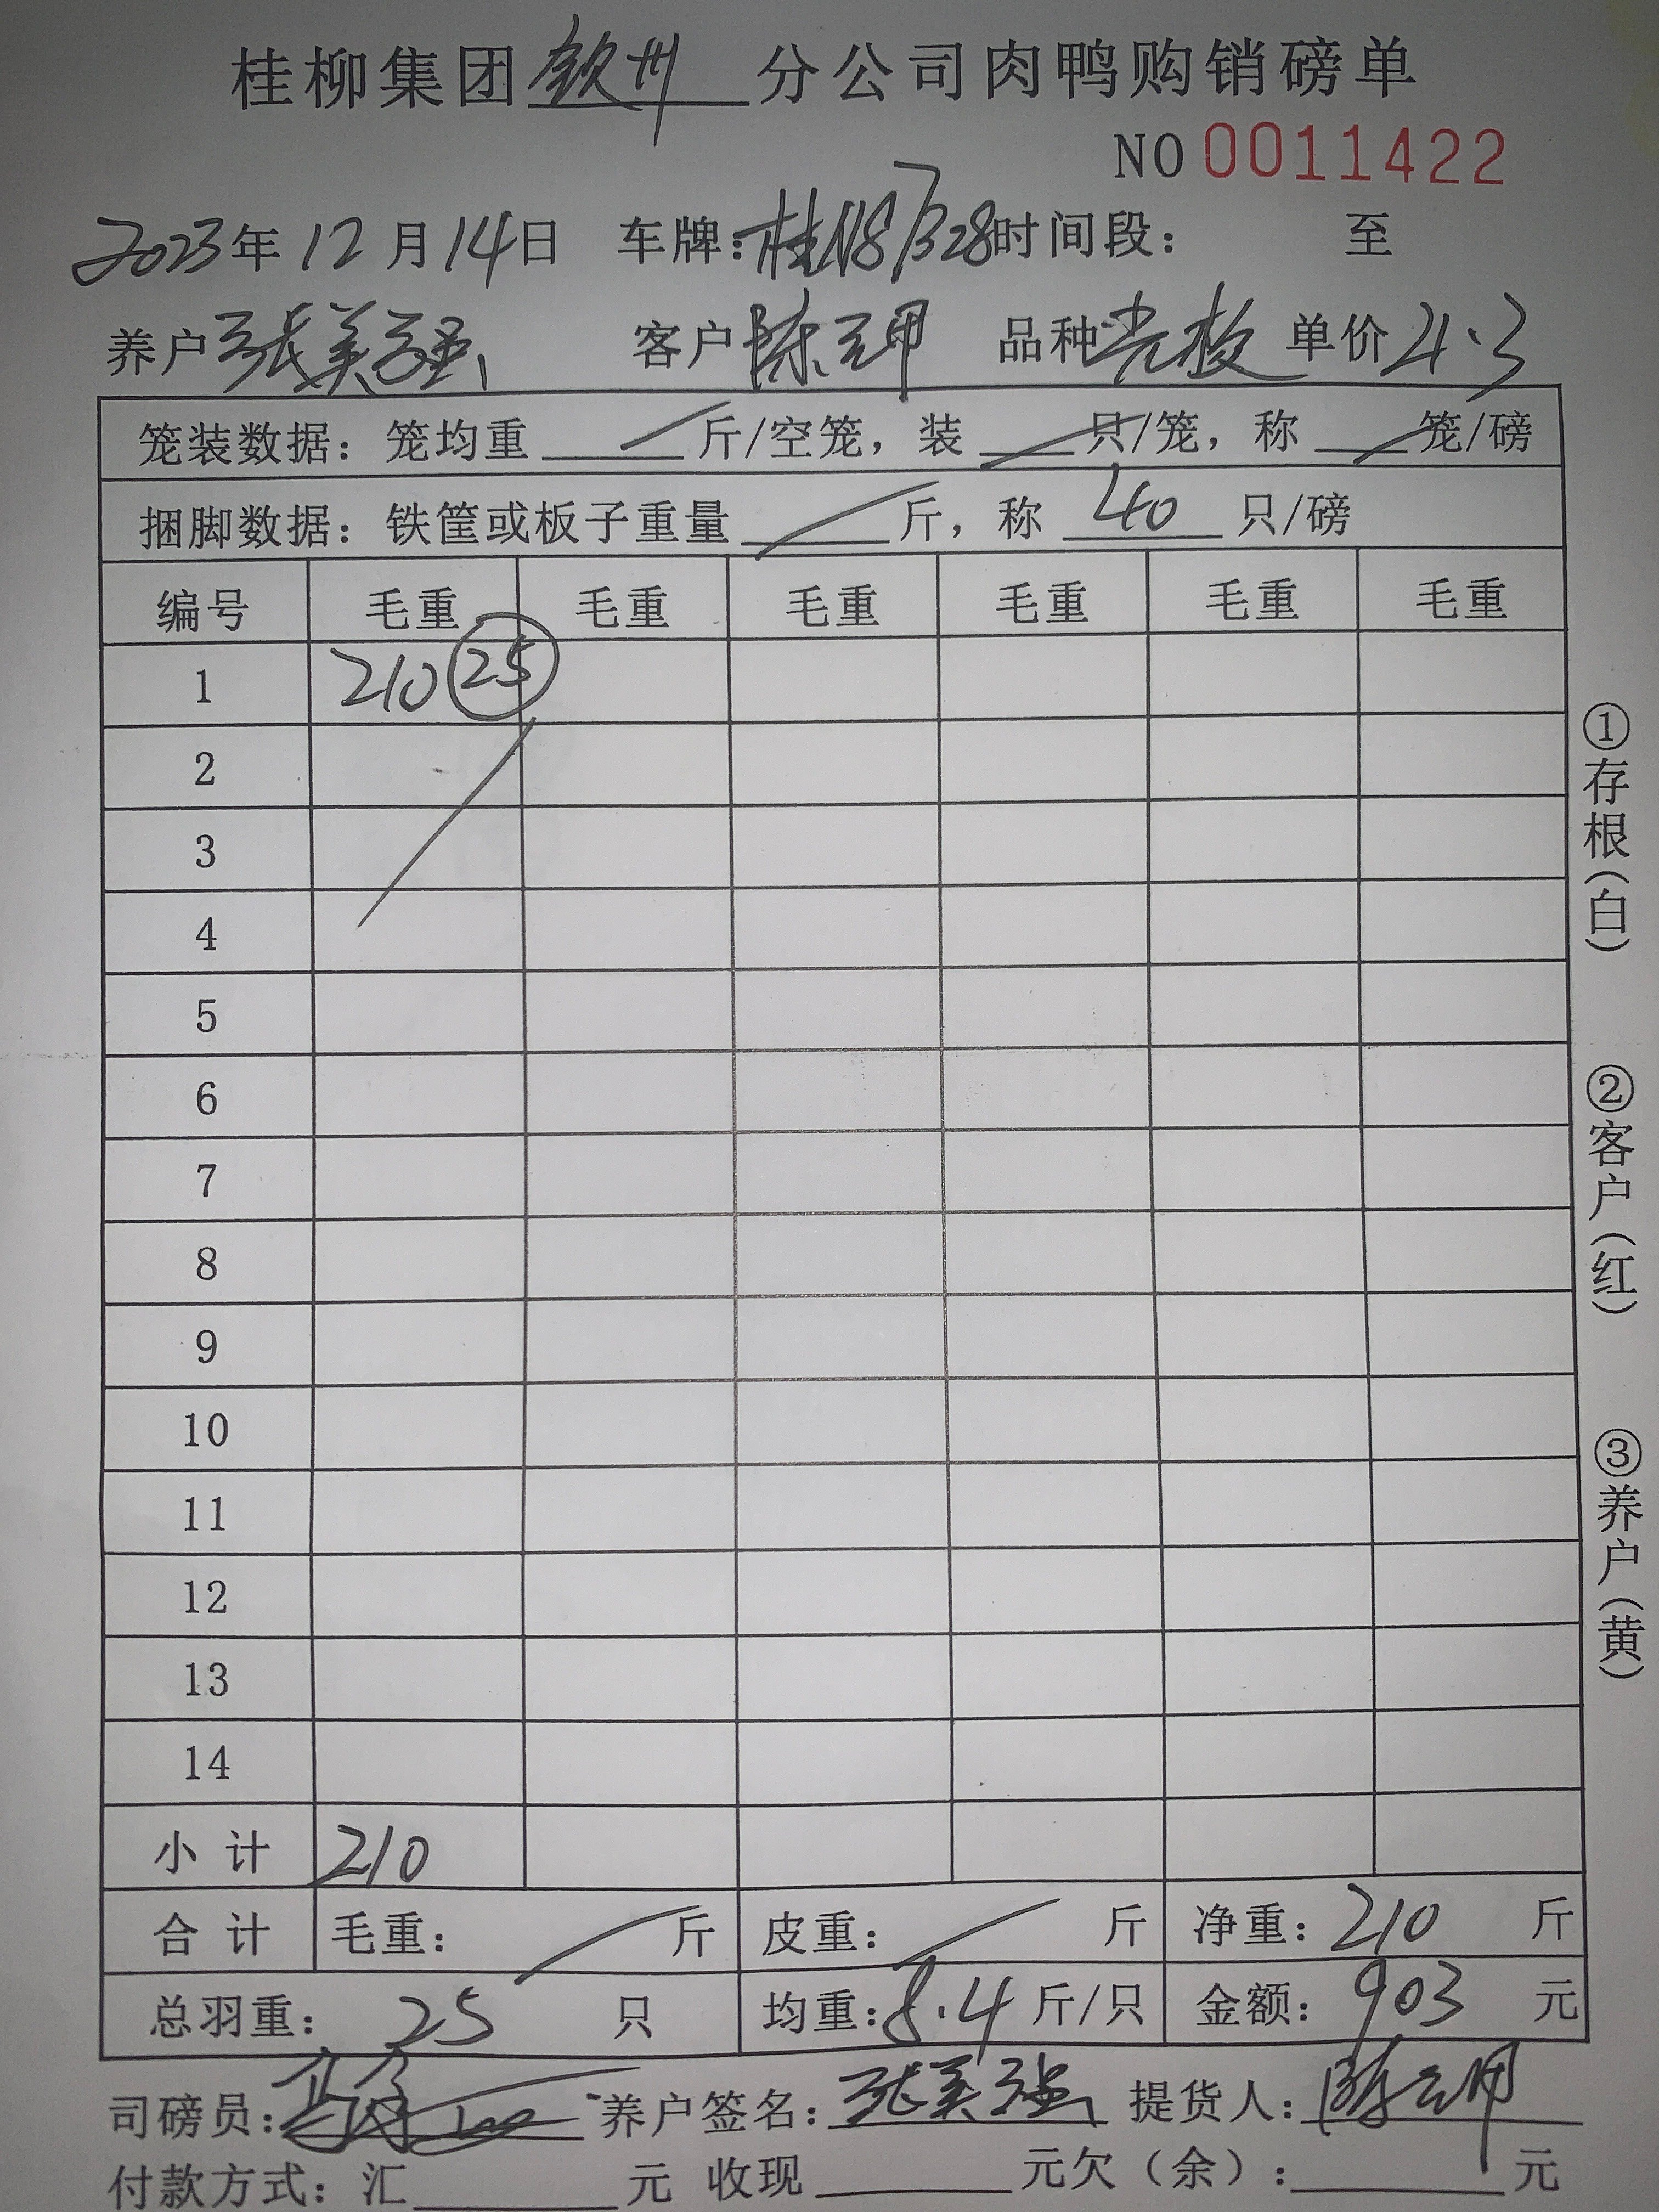 桂柳集团钦州分公司肉鸭购销磅单
NO 0011422
2023年12月14日 车牌:桂N8B328时间段: 至
养户 张美强 客户 陈元甲 品种 光板 单价 4.3
笼装数据: 笼均重 斤/空笼, 装 只/笼, 称 笼/磅
捆脚数据: 铁筐或板子重量 斤, 称 40 只/磅
编号 毛重 毛重 毛重 毛重 毛重 毛重
1 210 25
2
3
4
5
6
7
8
9
10
11
12
13
14
小计 210
合计 毛重: 斤 皮重: 斤 净重: 210 斤
总羽重: 25 只 均重: 8.4 斤/只 金额: 903 元
司磅员: 养户签名: 张美强 提货人:
付款方式: 汇 元 收现 元欠(余): 元
①存根(白)
②客户(红)
③养户(黄)